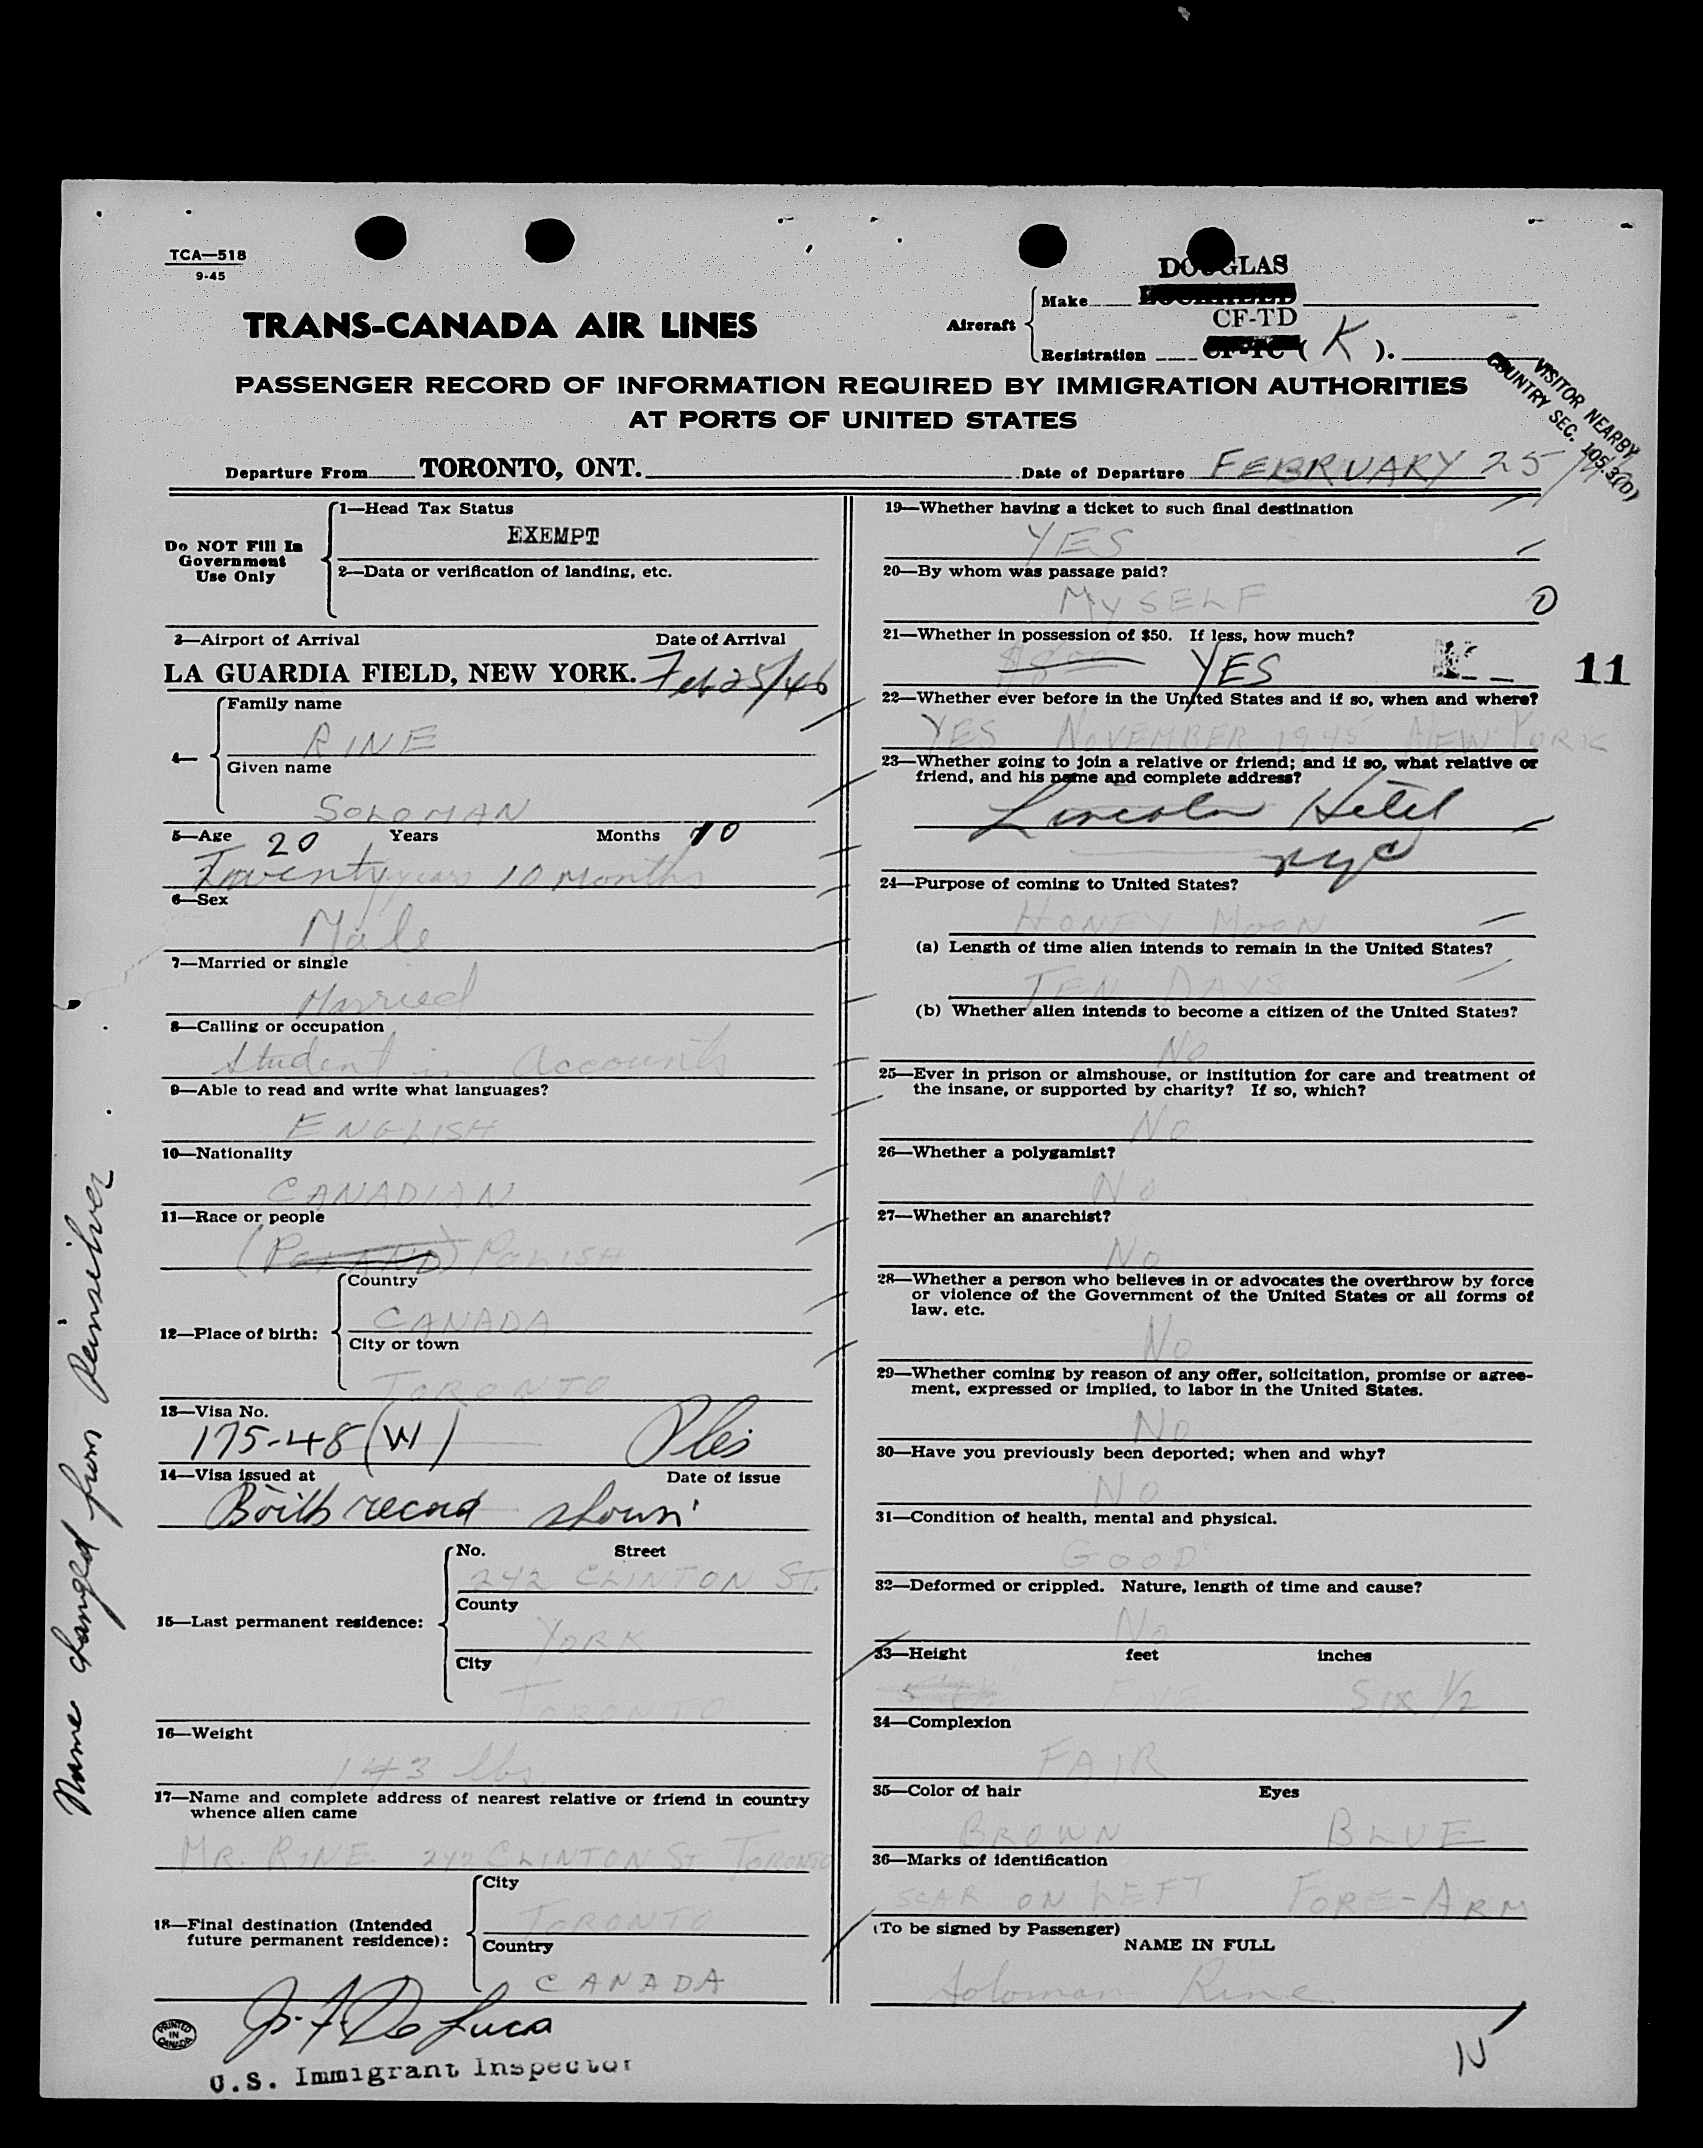 TCA—518
9-45
DOUGLAS
Aircraft
Make
CF-TD
Registration (K).
TRANS-CANADA AIR LINES
PASSENGER RECORD OF INFORMATION REQUIRED BY IMMIGRATION AUTHORITIES
AT PORTS OF UNITED STATES
VISITOR NEARBY
COUNTRY SEC. 105.3(D)
Departure From TORONTO, ONT. Date of Departure FEBRUARY 25
Do NOT Fill In
Government
Use Only
1—Head Tax Status
EXEMPT
2—Data or verification of landing, etc.
3—Airport of Arrival Date of Arrival
LA GUARDIA FIELD, NEW YORK. Feb 25/46
4—
Family name
RINE
Given name
SOLOMAN
5—Age 20 Years Months 10
Twenty years 10 Months
6—Sex
Male
7—Married or single
Married
8—Calling or occupation
Student in Accounts
9—Able to read and write what languages?
ENGLISH
10—Nationality
CANADIAN
11—Race or people
(POLAND) POLISH
12—Place of birth:
Country
CANADA
City or town
TORONTO
13—Visa No.
175-48 (W)
14—Visa issued at Date of issue
Birth record shown
15—Last permanent residence:
No. Street
242 CLINTON ST.
County
YORK
City
TORONTO
16—Weight
143 lbs
17—Name and complete address of nearest relative or friend in country
whence alien came
MR. RINE 242 CLINTON ST TORONTO
18—Final destination (Intended
future permanent residence):
City
TORONTO
Country
CANADA
J. F. De Luca
U.S. Immigrant Inspector
PRINTED
IN
CANADA
Name changed from Reinsilver
19—Whether having a ticket to such final destination
YES
20—By whom was passage paid?
MYSELF
0
21—Whether in possession of $50. If less, how much?
YES
11
22—Whether ever before in the United States and if so, when and where?
YES NOVEMBER 1945 NEW YORK
23—Whether going to join a relative or friend; and if so, what relative or
friend, and his name and complete address?
Lincoln Hotel
nyc
24—Purpose of coming to United States?
HONEY MOON
(a) Length of time alien intends to remain in the United States?
TEN DAYS
(b) Whether alien intends to become a citizen of the United States?
No
25—Ever in prison or almshouse, or institution for care and treatment of
the insane, or supported by charity? If so, which?
No
26—Whether a polygamist?
No
27—Whether an anarchist?
No
28—Whether a person who believes in or advocates the overthrow by force
or violence of the Government of the United States or all forms of
law, etc.
No
29—Whether coming by reason of any offer, solicitation, promise or agree-
ment, expressed or implied, to labor in the United States.
No
30—Have you previously been deported; when and why?
NO
31—Condition of health, mental and physical.
GOOD
32—Deformed or crippled. Nature, length of time and cause?
No
33—Height feet inches
FIVE SIX 1/2
34—Complexion
FAIR
35—Color of hair Eyes
BROWN BLUE
36—Marks of identification
SCAR ON LEFT FORE-ARM
(To be signed by Passenger)
NAME IN FULL
Soloman Rine